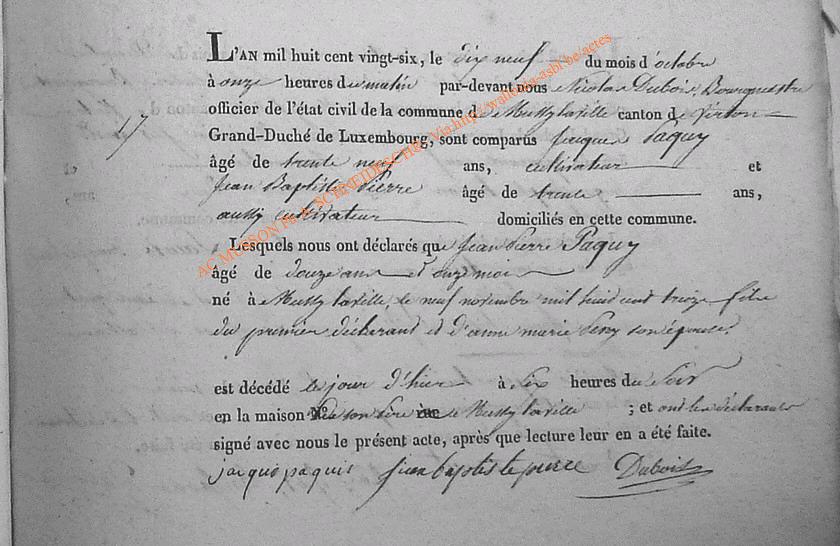 L'AN mil huit cent vingt-six, le dix neuf du mois d'octobre
à onze heures du matin par-devant nous Nicolas Dubois, Bourguemestre
officier de l'état civil de la commune de Mussy la ville canton de Virton
17
Grand-Duché de Luxembourg, sont comparus Jacques Paquy
âgé de trente neuf ans, cultivateur et
Jean Baptiste Pierre âgé de trente ans,
aussy cultivateur domiciliés en cette commune.
Lesquels nous ont déclarés que Jean Pierre Paquy
âgé de douze ans et onze mois
né à Mussy la ville, le neuf novembre mil huit cent treize fils
du premier déclarant et d'anne marie son épouse.
est décédé le jour d'hier à six heures du soir
en la maison de son père à Mussy la ville ; et ont les déclarants
signé avec nous le présent acte, après que lecture leur en a été faite.
jacque paquis jean baptiste pierre Dubois
AC MUSSON Ph.A. SCHNEIDESCH © Via http://wallonia-asbl.be/actes